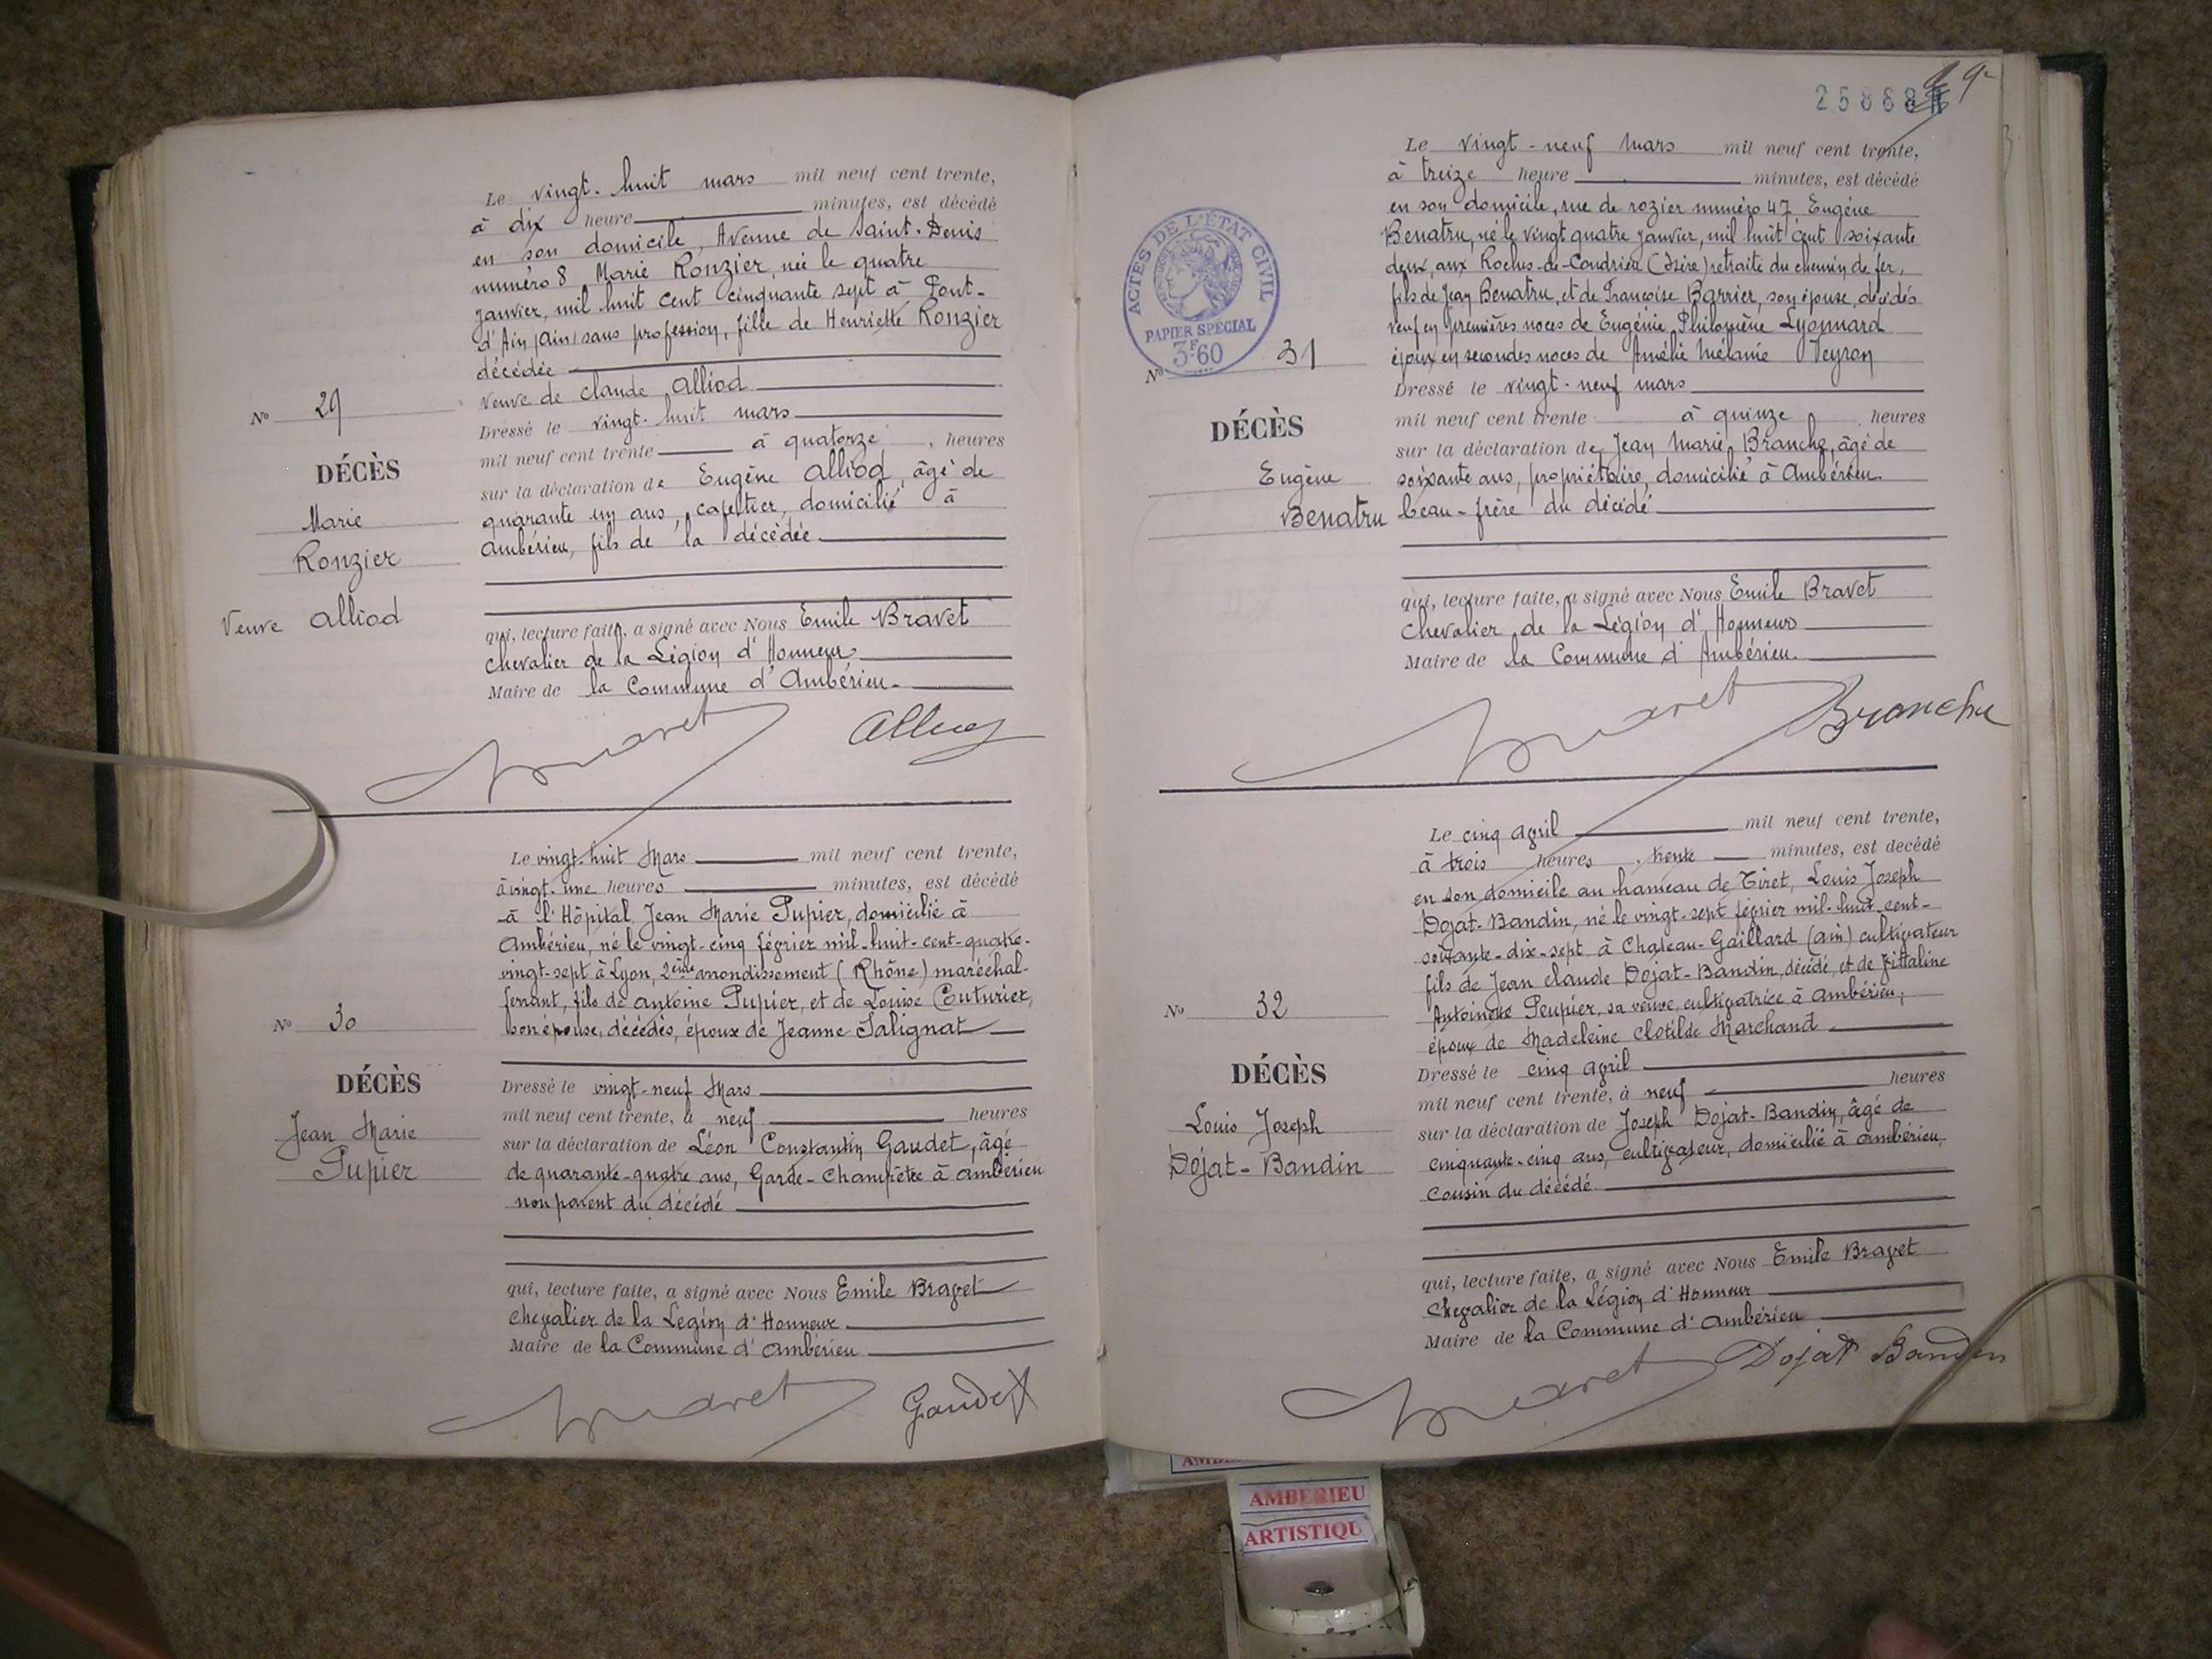 Le vingt-huit mars mil neuf cent trente,
à dix heure minutes, est décédé
en son domicile, Avenue de Saint-Denis
numéro 8 Marie Ronzier, née le quatre
janvier, mil huit cent cinquante sept à Pont-
d'Ain (Ain) sans profession, fille de Henriette Ronzier
décédée
veuve de claude Alliod
Dressé le vingt-huit mars
mil neuf cent trente à quatorze, heures
sur la déclaration de Eugène Alliod, âgé de
quarante un ans, cafetier, domicilié à
Ambérieu, fils de la décédée
qui, lecture faite, a signé avec Nous Emile Bravet
Chevalier de la Légion d'Honneur
Maire de la Commune d'Ambérieu.
N° 29
DÉCÈS
Marie
Ronzier
Veuve Alliod
Bravet
Le vingt-huit Mars mil neuf cent trente,
à vingt-une heures minutes, est décédé
à l'Hôpital Jean Marie Pupier, domicilié à
Ambérieu, né le vingt-cinq février mil-huit-cent-quatre-
vingt-sept à Lyon, 2ème arrondissement (Rhône) maréchal-
ferrant, fils de Antoine Pupier, et de Louise Couturier,
son épouse, décédés, époux de Jeanne Salignat
Dressé le vingt-neuf Mars
mil neuf cent trente, à neuf heures
sur la déclaration de Léon Constantin Gaudet, âgé
de quarante-quatre ans, Garde-Champêtre à Ambérieu
non parent du décédé
qui, lecture faite, a signé avec Nous Emile Bravet
Chevalier de la Légion d'Honneur
Maire de la Commune d'Ambérieu
N° 30
DÉCÈS
Jean Marie
Pupier
Bravet Gaudet
Le vingt-neuf mars mil neuf cent trente,
à treize heure minutes, est décédé
en son domicile, rue de rozier numéro 47 Eugène
Benatru, né le vingt quatre janvier, mil huit cent soixante
deux, aux Roches-de-Condrieu (Isère) retraité du chemin de fer,
fils de Jean Benatru, et de Françoise Barrier, son épouse, décédés
veuf en premières noces de Eugénie Philomène Lyonnard
époux en secondes noces de Amélie Mélanie Veyron
Dressé le vingt-neuf mars
mil neuf cent trente à quinze heures
sur la déclaration de Jean Marie Branche, âgé de
soixante ans, propriétaire, domicilié à Ambérieu
beau-frère du décédé
qui, lecture faite, a signé avec Nous Emile Bravet
Chevalier de la Légion d'Honneur
Maire de la Commune d'Ambérieu.
ACTES DE L'ÉTAT CIVIL
PAPIER SPÉCIAL
3F60
N° 31
DÉCÈS
Eugène
Benatru
Bravet Branche
Le cinq avril mil neuf cent trente,
à trois heures, trente minutes, est decédé
en son domicile au hameau de Tiret, Louis Joseph
Dojat-Bandin, né le vingt-sept février mil-huit-cent-
soixante-dix-sept à Château-Gaillard (ain) cultivateur
fils de Jean claude Dojat-Bandin, décédé, et de
Antoinette Peupier, sa veuve, cultivatrice à Ambérieu,
époux de Madeleine Clotilde Marchand
Dressé le cinq avril
mil neuf cent trente, à neuf heures
sur la déclaration de Joseph Dojat-Bandin, âgé de
cinquante-cinq ans, cultivateur, domicilié à Ambérieu,
cousin du décédé
qui, lecture faite, a signé avec Nous Emile Bravet
Chevalier de la Légion d'Honneur
Maire de la Commune d'Ambérieu
N° 32
DÉCÈS
Louis Joseph
Dojat-Bandin
Bravet Dojat Bandin
AMBERIEU
ARTISTIQU